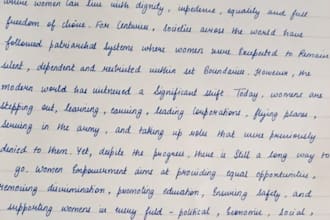 where women can live with dignity, independence, equality and full
freedom of choice. For Centuries, societies across the world have
followed patriarchal systems where women were Expected to Remain
silent, dependent and restricted within set Boundaries. However, the
modern world has witnessed a significant shift. Today, women are
stepping out, learning, earning, leading corporations, flying planes,
serving in the army, and taking up roles that were previously
denied to them. Yet, despite the progress, there is still a long way to
go. Women Empowerment aims at providing equal opportunities,
removing discrimination, promoting education, Ensuring safety, and
supporting women in every field - political, Economic, Social,